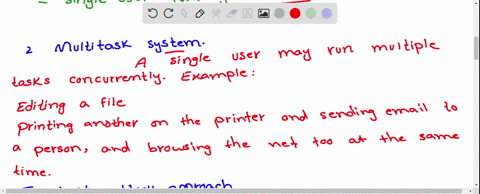 = single user
2 Multitask system.
A single user may run multiple
tasks concurrently. Example:
Editing a file
printing another on the printer and sending email to
a person, and browsing the net too at the same
time.
approach